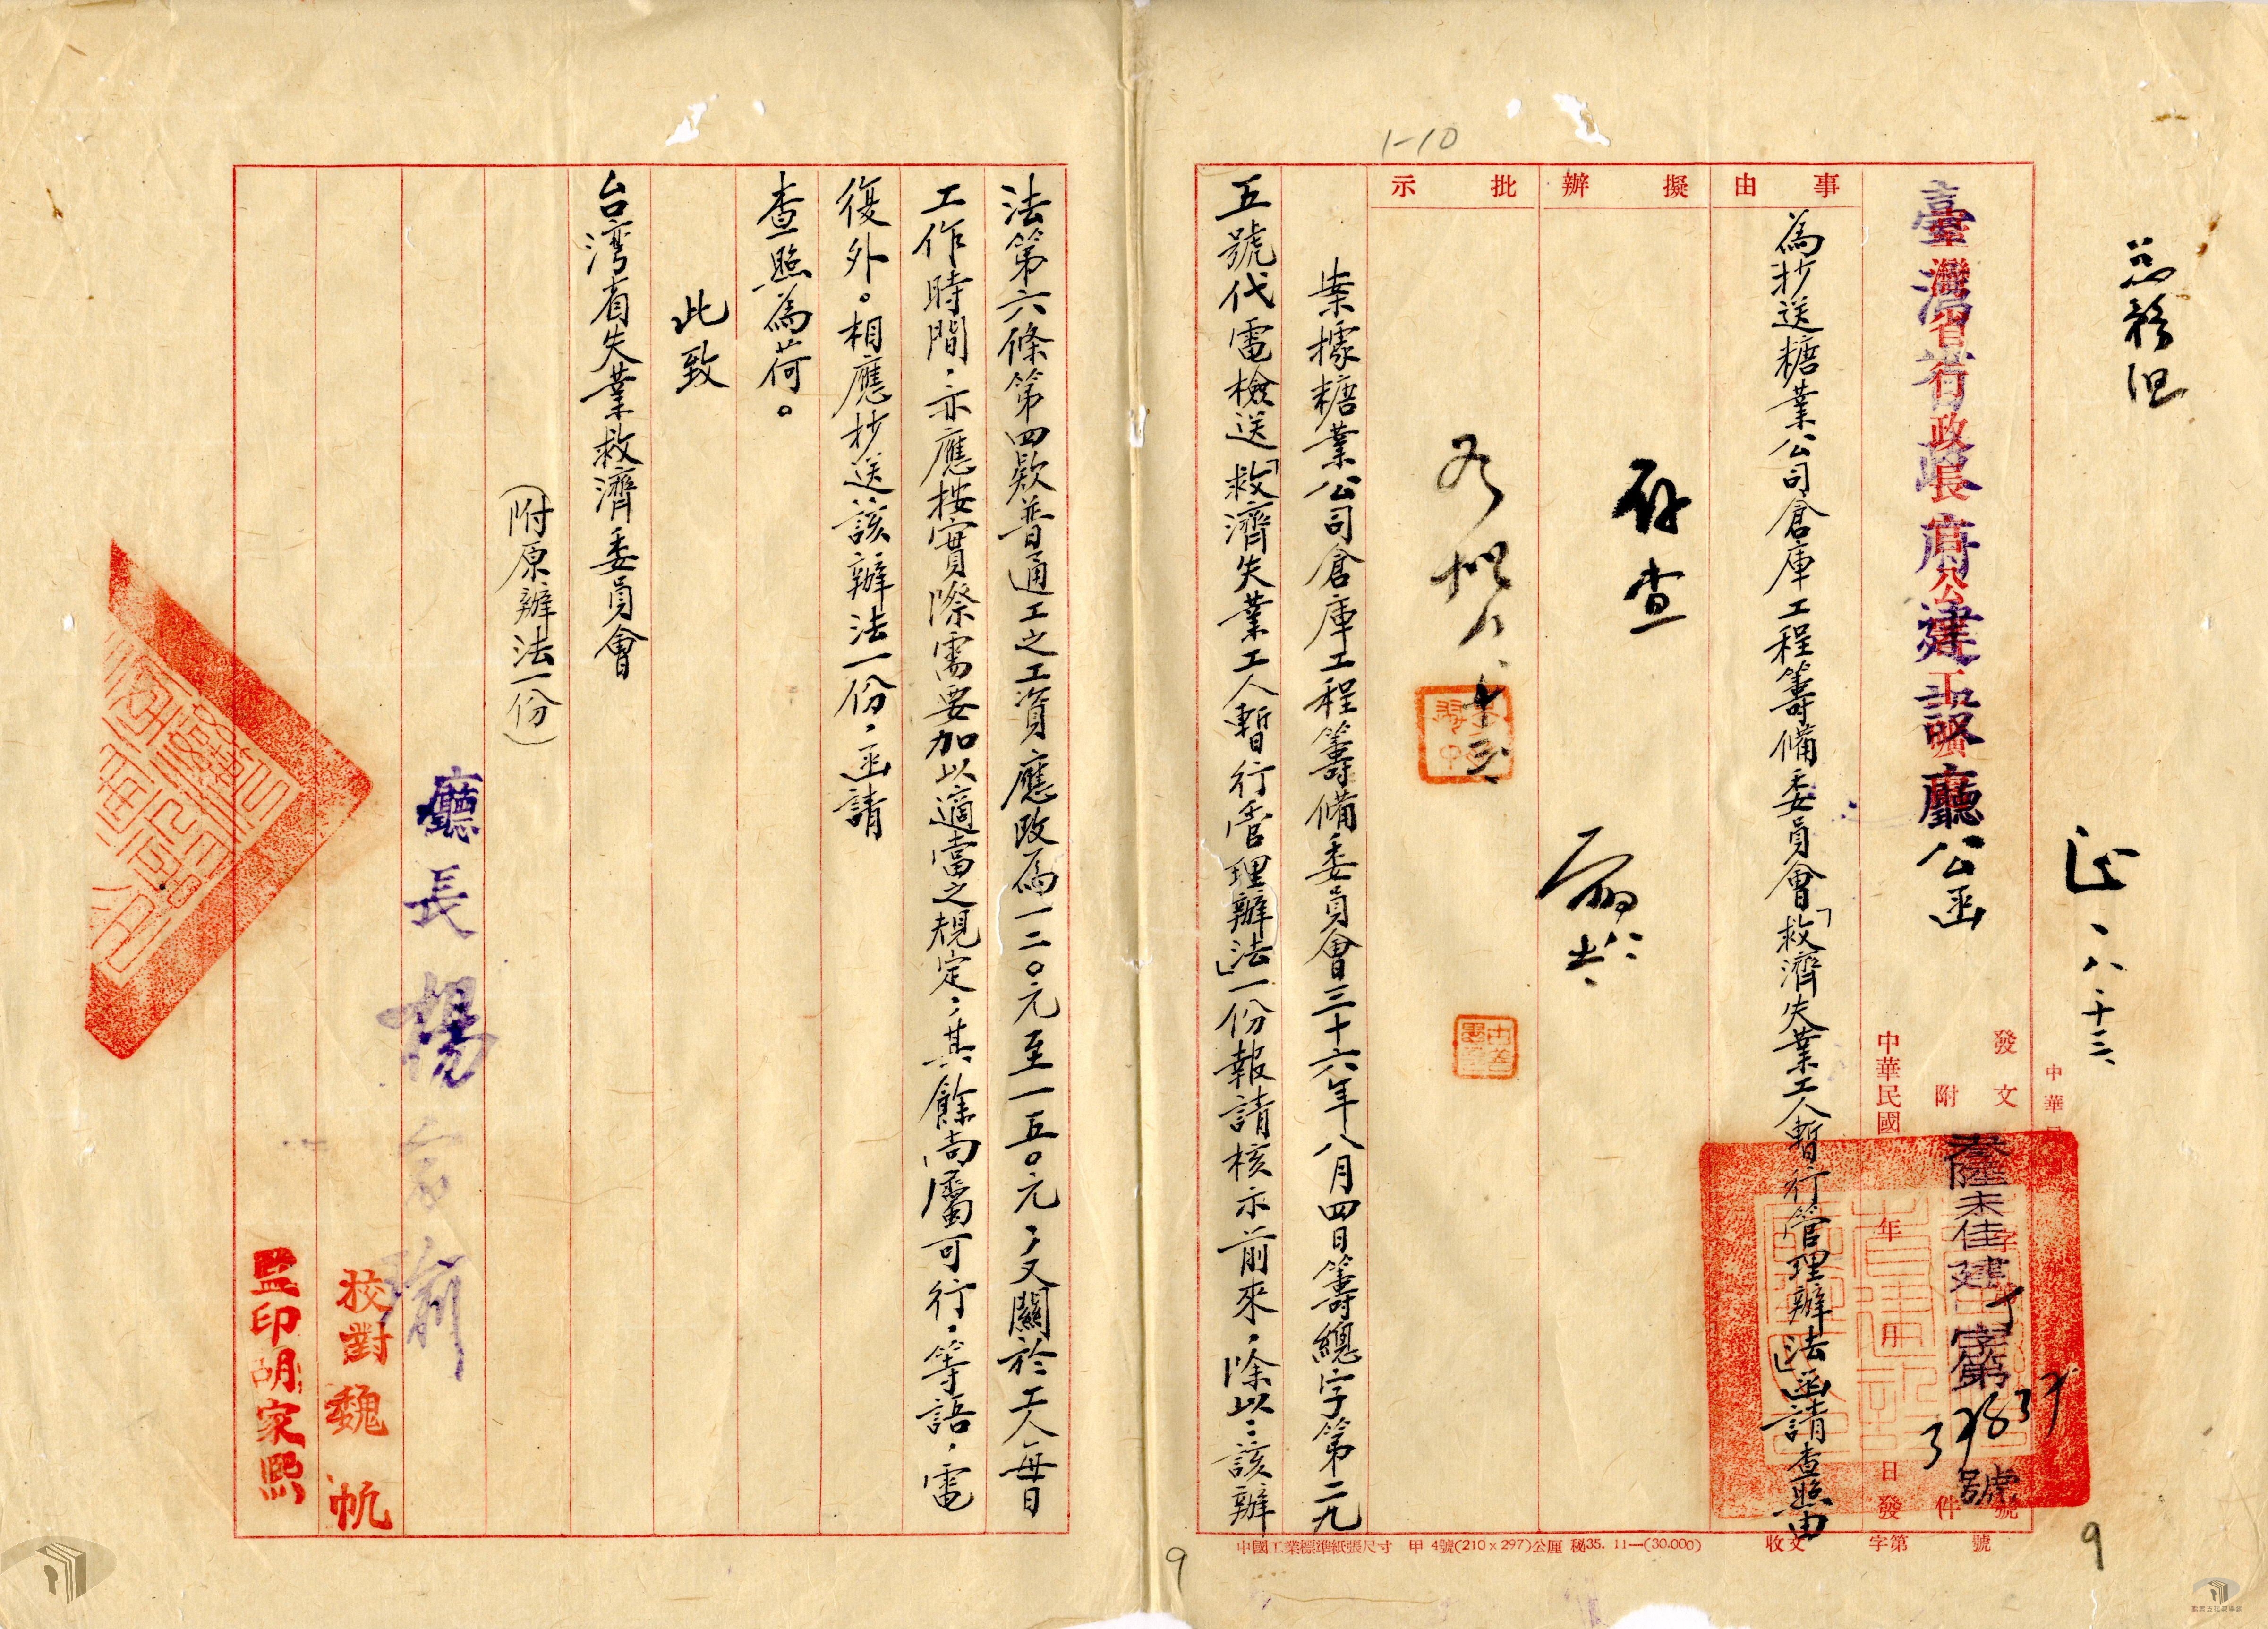 1-10
臺灣省政府建設廳公函
發文
附件
中華民國 年 月 日發
字第 號
事由
為抄送糖業公司倉庫工程籌備委員會「救濟失業工人暫行管理辦法」函請查照由
擬辦
存查
批示
案據糖業公司倉庫工程籌備委員會三十六年八月四日籌總字第二九
五號代電檢送「救濟失業工人暫行管理辦法」一份報請核示前來,除以:該辦
法第六條第四款普通工之工資應改為一二〇元至一五〇元,又關於工人每日
工作時間,亦應按實際需要加以適當之規定,其餘尚屬可行,等語,電
復外。相應抄送該辦法一份,函請
查照為荷。
此致
台湾省失業救濟委員會
(附原辦法一份)
廳長 楊家瑜
校對 魏帆
監印 胡家熙
中國工業標準紙張尺寸 甲4號(210×297)公厘 秘35. 11—(30.000)
收文 字第 號
9
9